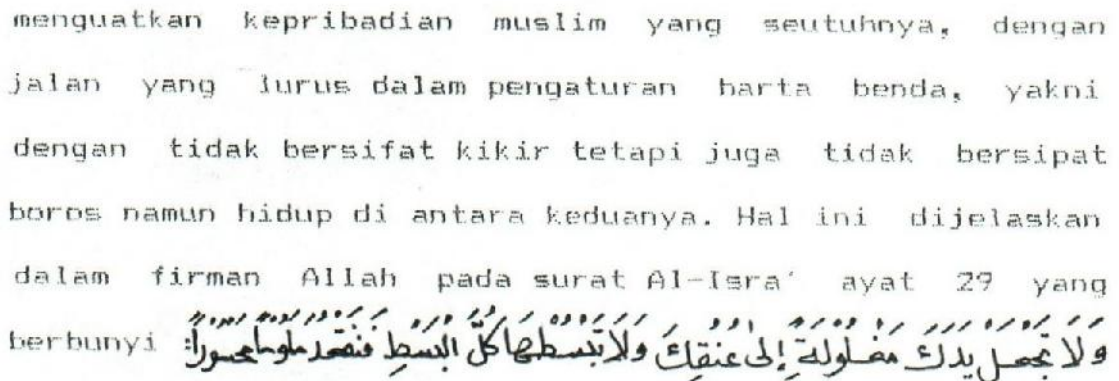 menguatkan kepribadian muslim yang seutuhnya, dengan
jalan yang lurus dalam pengaturan harta benda, yakni
dengan tidak bersifat kikir tetapi juga tidak bersipat
boros namun hidup di antara keduanya. Hal ini dijelaskan
dalam firman Allah pada surat Al-Isra' ayat 29 yang
berbunyi : وَلَا تَجْعَلْ يَدَكَ مَغْلُولَةً إِلَى عُنُقِكَ وَلَا تَبْسُطْهَا كُلَّ الْبَسْطِ فَتَقْعُدَ مَلُومًا مَحْسُورًا